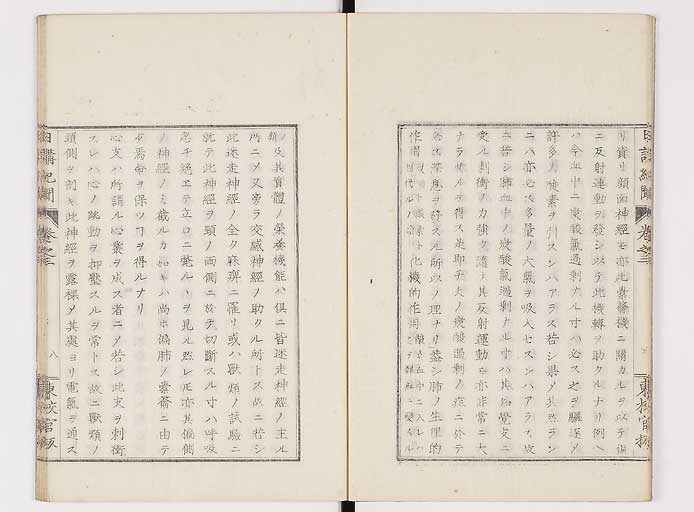 リ實リ顔面神經モ亦此橐籥機ニ關カルヲ以テ俱
ニ反射運動ヲ發シ以テ此機轉ヲ助クルナリ例ヘ
ハ今血中ニ炭酸氣過剰ナル寸ハ必ス之ヲ驅逐シ
許多ノ酸素ヲ引スンハアラス若シ果メ其然ラン
ニハ亦必ス多量ノ大氣ヲ吸入セスンハアラス故
ニ若シ肺血中ノ炭酸氣過剰ナル寸ハ其知覺支ニ
受ル刺衝ノ力強ク隨テ其反射運動モ亦非常ニ大
ナラサルヲ得ス是即チ夫ノ炭酸過剰ノ症ニ於テ
必ス深息ヲ發スル所以ノ理ナリ蓋シ肺ノ生理的
作用
化機的作用
日講紀聞 卷之三
東校官板
類ノ及其實體ノ榮養機能ハ俱ニ皆迷走神經ノ主ル
所ニメ又旁ラ交感神經ノ助クル所トス故ニ若シ
此迷走神經ノ全ク麻痺ニ罹リ或ハ獸類ノ試驗ニ
就テ此神經ヲ頸ノ兩側ニ於テ切斷スル寸ハ呼吸
忽チ絶エテ立ロニ斃ルヽヲ見ル然レ𪜈亦其偏側
ノ神經ノミ裁ルカ如キハ尚ホ偏肺ノ橐籥ニ由テ
其命ヲ保ツヿヲ得ルナリ
心支ハ所謂ル心叢ヲ成ス者ニメ若シ此支ヲ刺衝
スレハ心ノ跳動ヲ抑壓スルヲ常トス故ニ獸類ノ
頸側ヲ剖キ此神經ヲ露裸メ其處ヨリ電氣ヲ通ス
日講紀聞 卷之三
八
東校官板